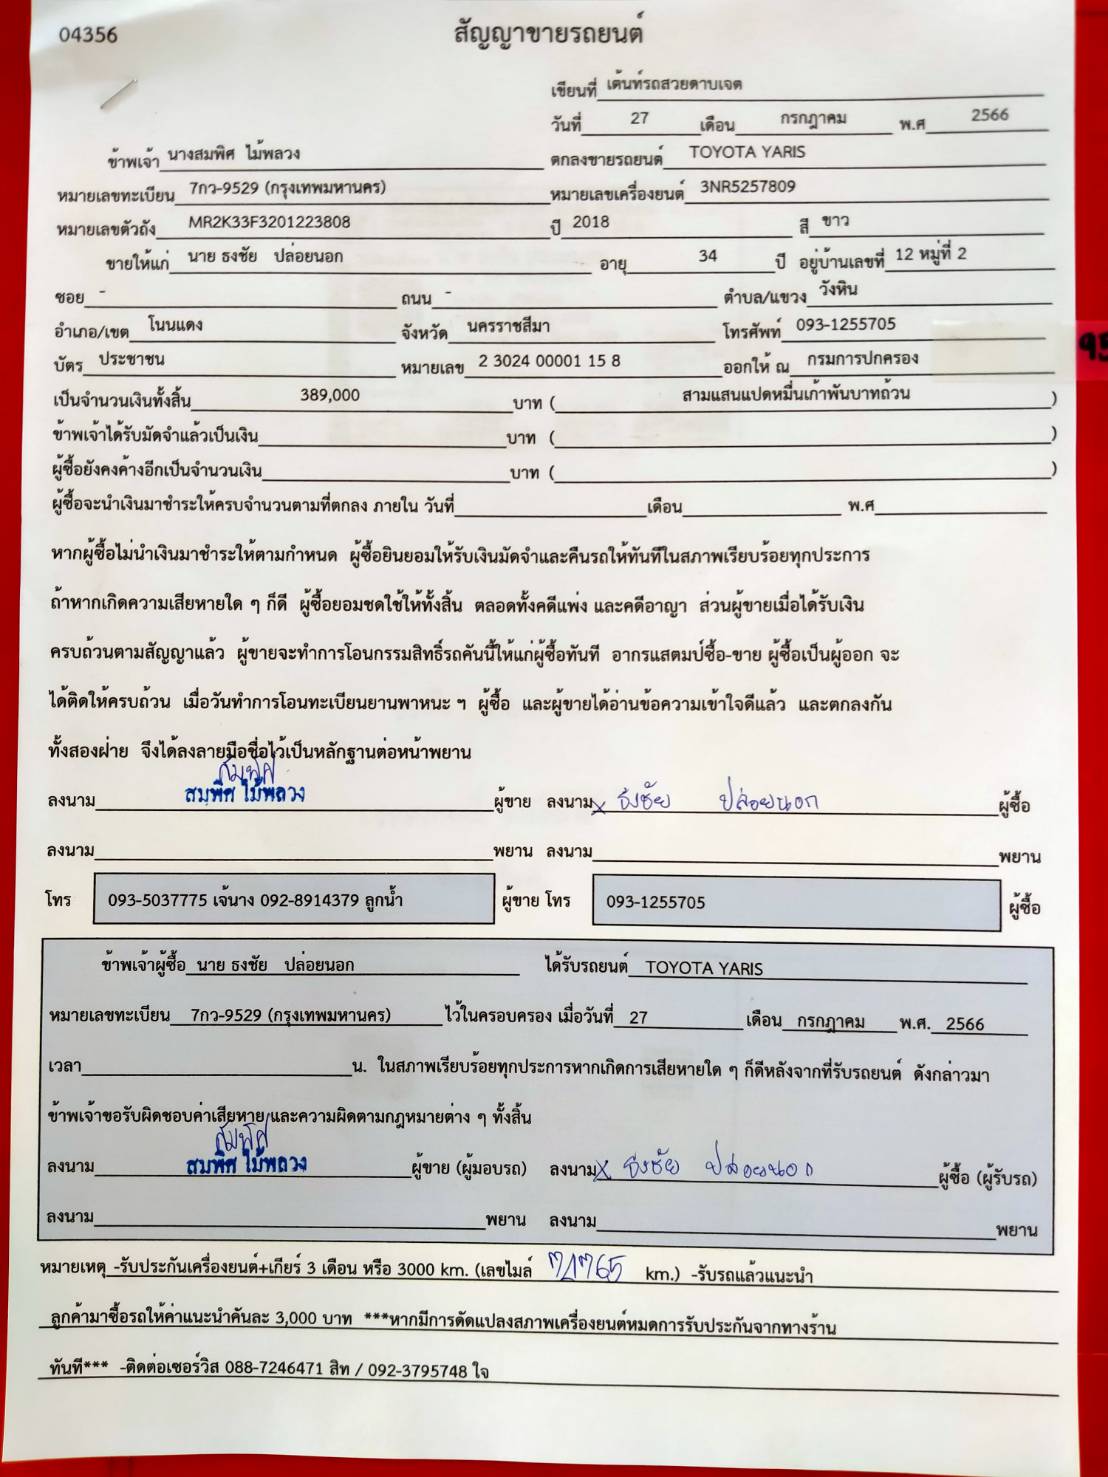 04356
สัญญาขายรถยนต์
เขียนที่ เต้นท์รถสวยดาบเจต
วันที่ 27 เดือน กรกฎาคม พ.ศ 2566
ข้าพเจ้า นางสมพิศ ไม้พลวง ตกลงขายรถยนต์ TOYOTA YARIS
หมายเลขทะเบียน 7กว-9529 (กรุงเทพมหานคร) หมายเลขเครื่องยนต์ 3NR5257809
หมายเลขตัวถัง MR2K33F3201223808 ปี 2018 สี ขาว
ขายให้แก่ นาย ธงชัย ปล่อยนอก อายุ 34 ปี อยู่บ้านเลขที่ 12 หมู่ที่ 2
ซอย - ถนน - ตำบล/แขวง วังหิน
อำเภอ/เขต โนนแดง จังหวัด นครราชสีมา โทรศัพท์ 093-1255705
บัตร ประชาชน หมายเลข 2 3024 00001 15 8 ออกให้ ณ กรมการปกครอง
เป็นจำนวนเงินทั้งสิ้น 389,000 บาท ( สามแสนแปดหมื่นเก้าพันบาทถ้วน )
ข้าพเจ้าได้รับมัดจำแล้วเป็นเงิน บาท ( )
ผู้ซื้อยังคงค้างอีกเป็นจำนวนเงิน บาท ( )
ผู้ซื้อจะนำเงินมาชำระให้ครบจำนวนตามที่ตกลง ภายใน วันที่ เดือน พ.ศ
หากผู้ซื้อไม่นำเงินมาชำระให้ตามกำหนด ผู้ซื้อยินยอมให้รับเงินมัดจำและคืนรถให้ทันทีในสภาพเรียบร้อยทุกประการ
ถ้าหากเกิดความเสียหายใด ๆ ก็ดี ผู้ซื้อยอมชดใช้ให้ทั้งสิ้น ตลอดทั้งคดีแพ่ง และคดีอาญา ส่วนผู้ขายเมื่อได้รับเงิน
ครบถ้วนตามสัญญาแล้ว ผู้ขายจะทำการโอนกรรมสิทธิ์รถคันนี้ให้แก่ผู้ซื้อทันที อากรแสตมป์ซื้อ-ขาย ผู้ซื้อเป็นผู้ออก จะ
ได้ติดให้ครบถ้วน เมื่อวันทำการโอนทะเบียนยานพาหนะ ฯ ผู้ซื้อ และผู้ขายได้อ่านข้อความเข้าใจดีแล้ว และตกลงกัน
ทั้งสองฝ่าย จึงได้ลงลายมือชื่อไว้เป็นหลักฐานต่อหน้าพยาน
สมพิศ
ลงนาม สมพิศ ไม้พลวง ผู้ขาย ลงนาม x ธงชัย ปล่อยนอก ผู้ซื้อ
ลงนาม พยาน ลงนาม พยาน
โทร 093-5037775 เจ้นาง 092-8914379 ลูกน้ำ ผู้ขาย โทร 093-1255705 ผู้ซื้อ
ข้าพเจ้าผู้ซื้อ นาย ธงชัย ปล่อยนอก ได้รับรถยนต์ TOYOTA YARIS
หมายเลขทะเบียน 7กว-9529 (กรุงเทพมหานคร) ไว้ในครอบครอง เมื่อวันที่ 27 เดือน กรกฎาคม พ.ศ. 2566
เวลา น. ในสภาพเรียบร้อยทุกประการหากเกิดการเสียหายใด ๆ ก็ดีหลังจากที่รับรถยนต์ ดังกล่าวมา
ข้าพเจ้าขอรับผิดชอบค่าเสียหาย และความผิดตามกฎหมายต่าง ๆ ทั้งสิ้น
สมพิศ
ลงนาม สมพิศ ไม้พลวง ผู้ขาย (ผู้มอบรถ) ลงนาม x ธงชัย ปล่อยนอก ผู้ซื้อ (ผู้รับรถ)
ลงนาม พยาน ลงนาม พยาน
หมายเหตุ -รับประกันเครื่องยนต์+เกียร์ 3 เดือน หรือ 3000 km. (เลขไมล์ km.) -รับรถแล้วแนะนำ
ลูกค้ามาซื้อรถให้ค่าแนะนำคันละ 3,000 บาท ***หากมีการดัดแปลงสภาพเครื่องยนต์หมดการรับประกันจากทางร้าน
ทันที*** -ติดต่อเซอร์วิส 088-7246471 สิท / 092-3795748 ใจ